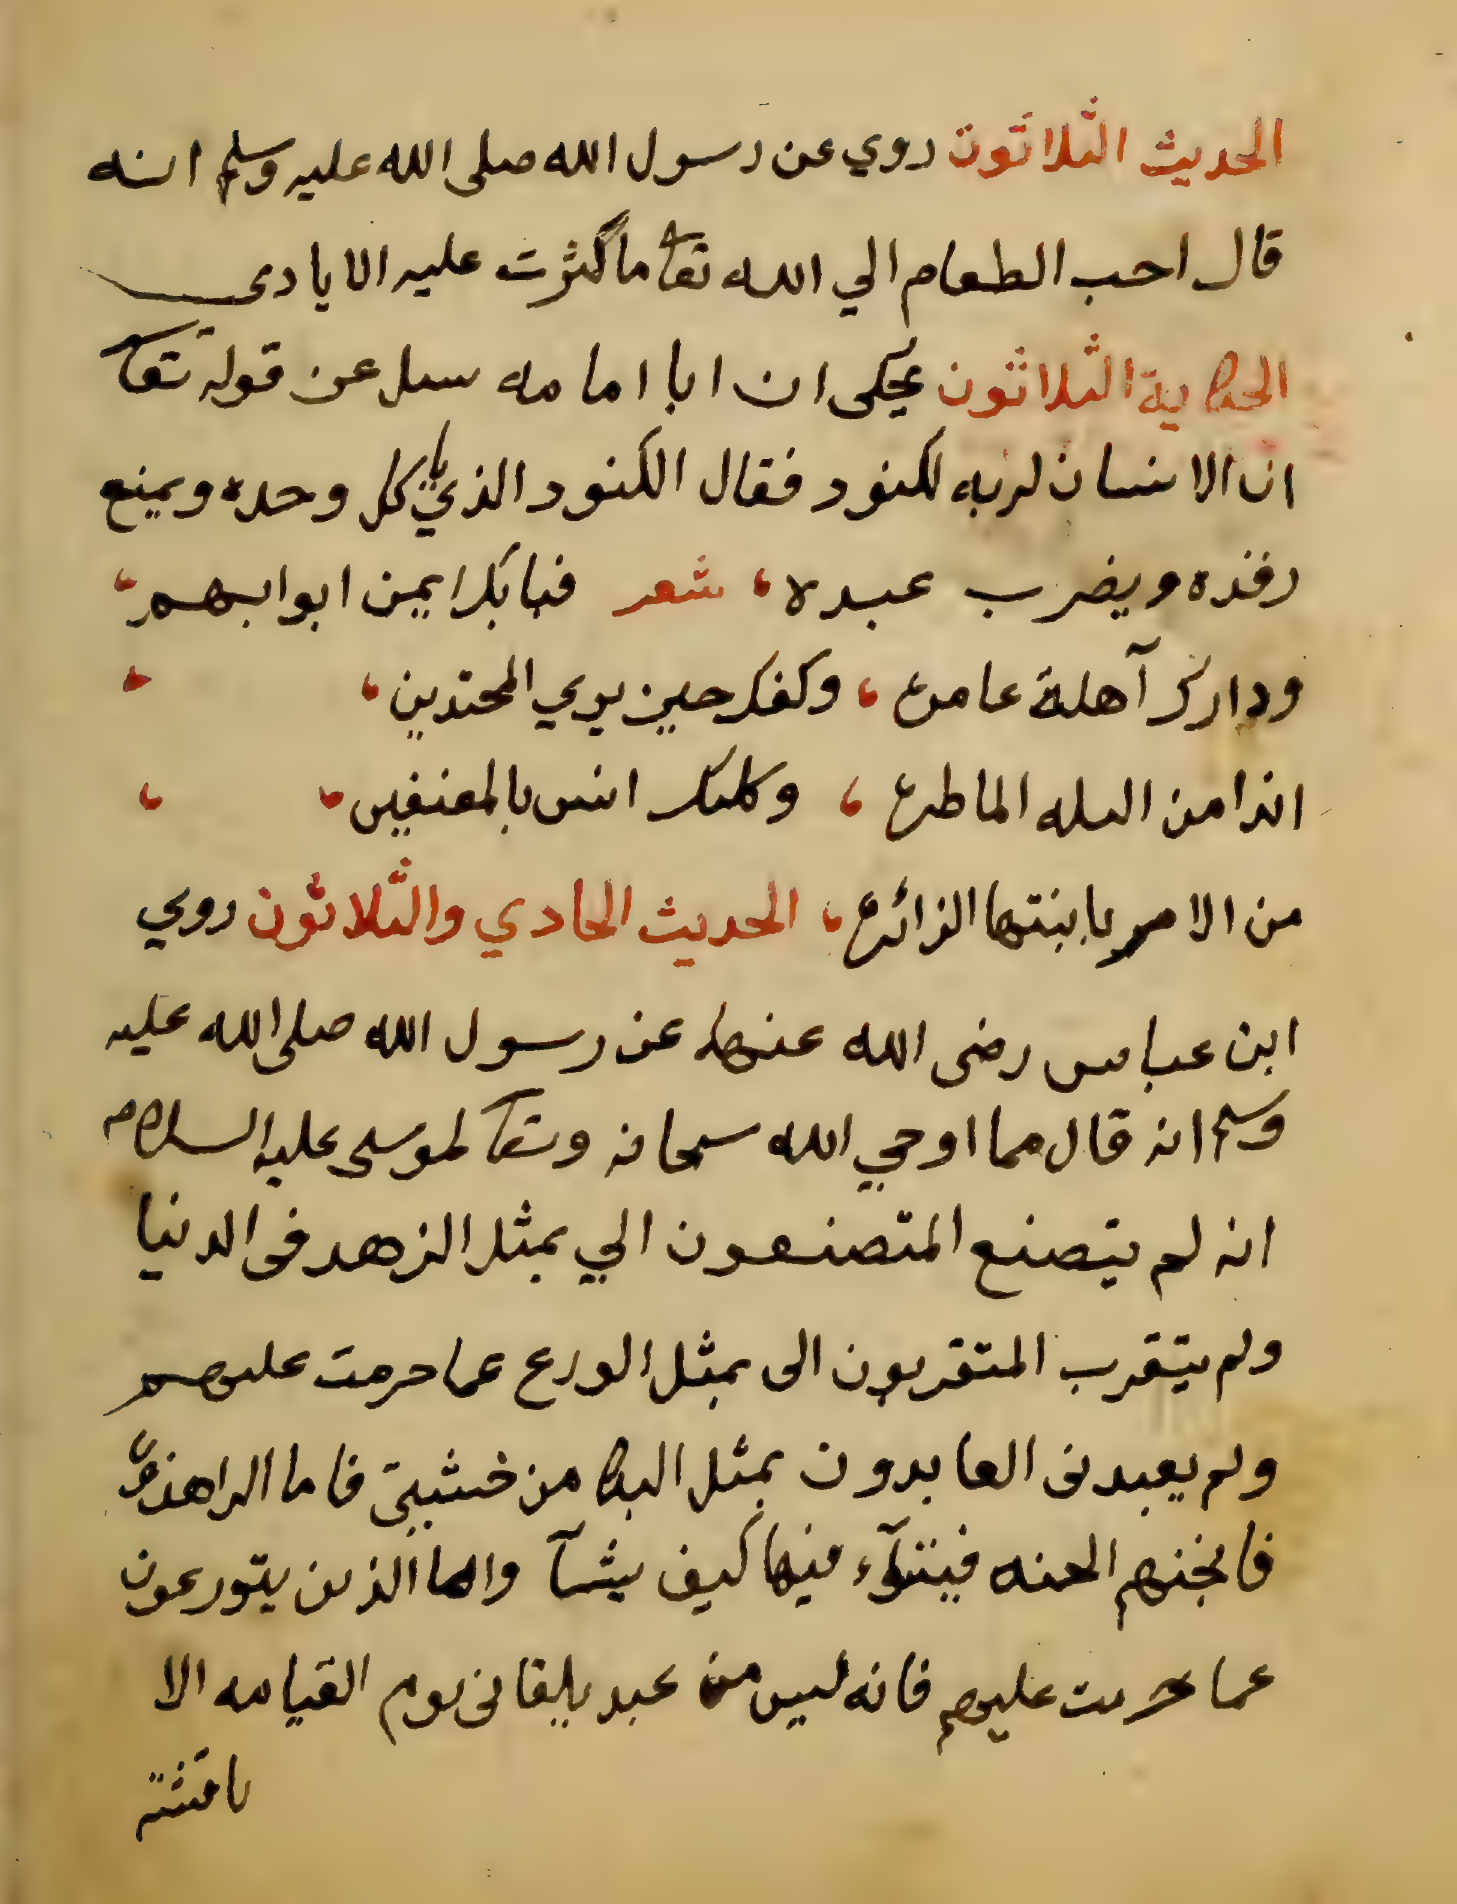 الحديث الثلاثون روي عن رسول الله صلى الله عليه وسلم انه
قال احب الطعام الي الله تعا ما كثرت عليه الايادى
الحكاية الثلاثون يحكى ان ابا امامه سىل عن قوله تعا
ان الانسان لربه لكنود فقال الكنود الذي ياكل وحده ويمنع
رفده ويضرب عبده شعر فبابك ايمن ابوابهم
ودارك آهلة عامرة وكفك حين يري المجتدين
اندا من الليله الماطرة وكلبك انس بالمعتفين
من الام بابنتها الزائرة الحديث الحادي والثلاثون روي
ابن عباس رضى الله عنهما عن رسول الله صلى الله عليه
وسلم انه قال مما اوحي الله سبحانه وتعا لموسى عليه السلام
انه لم يتصنع المتصنعون الي بمثل الزهد فى الدنيا
ولم يتقرب المتقربون الى بمثل الورع عما حرمت عليهم
ولم يعبدنى العابدون بمثل البكا من خشيتي فاما الزاهدون
فابحنهم الجنه فيتبوّء فيها كيف يشآ واما الذين يتورعون
عما حرمت عليهم فانه ليس من عبد يلقانى يوم القيامه الا
ناقشته